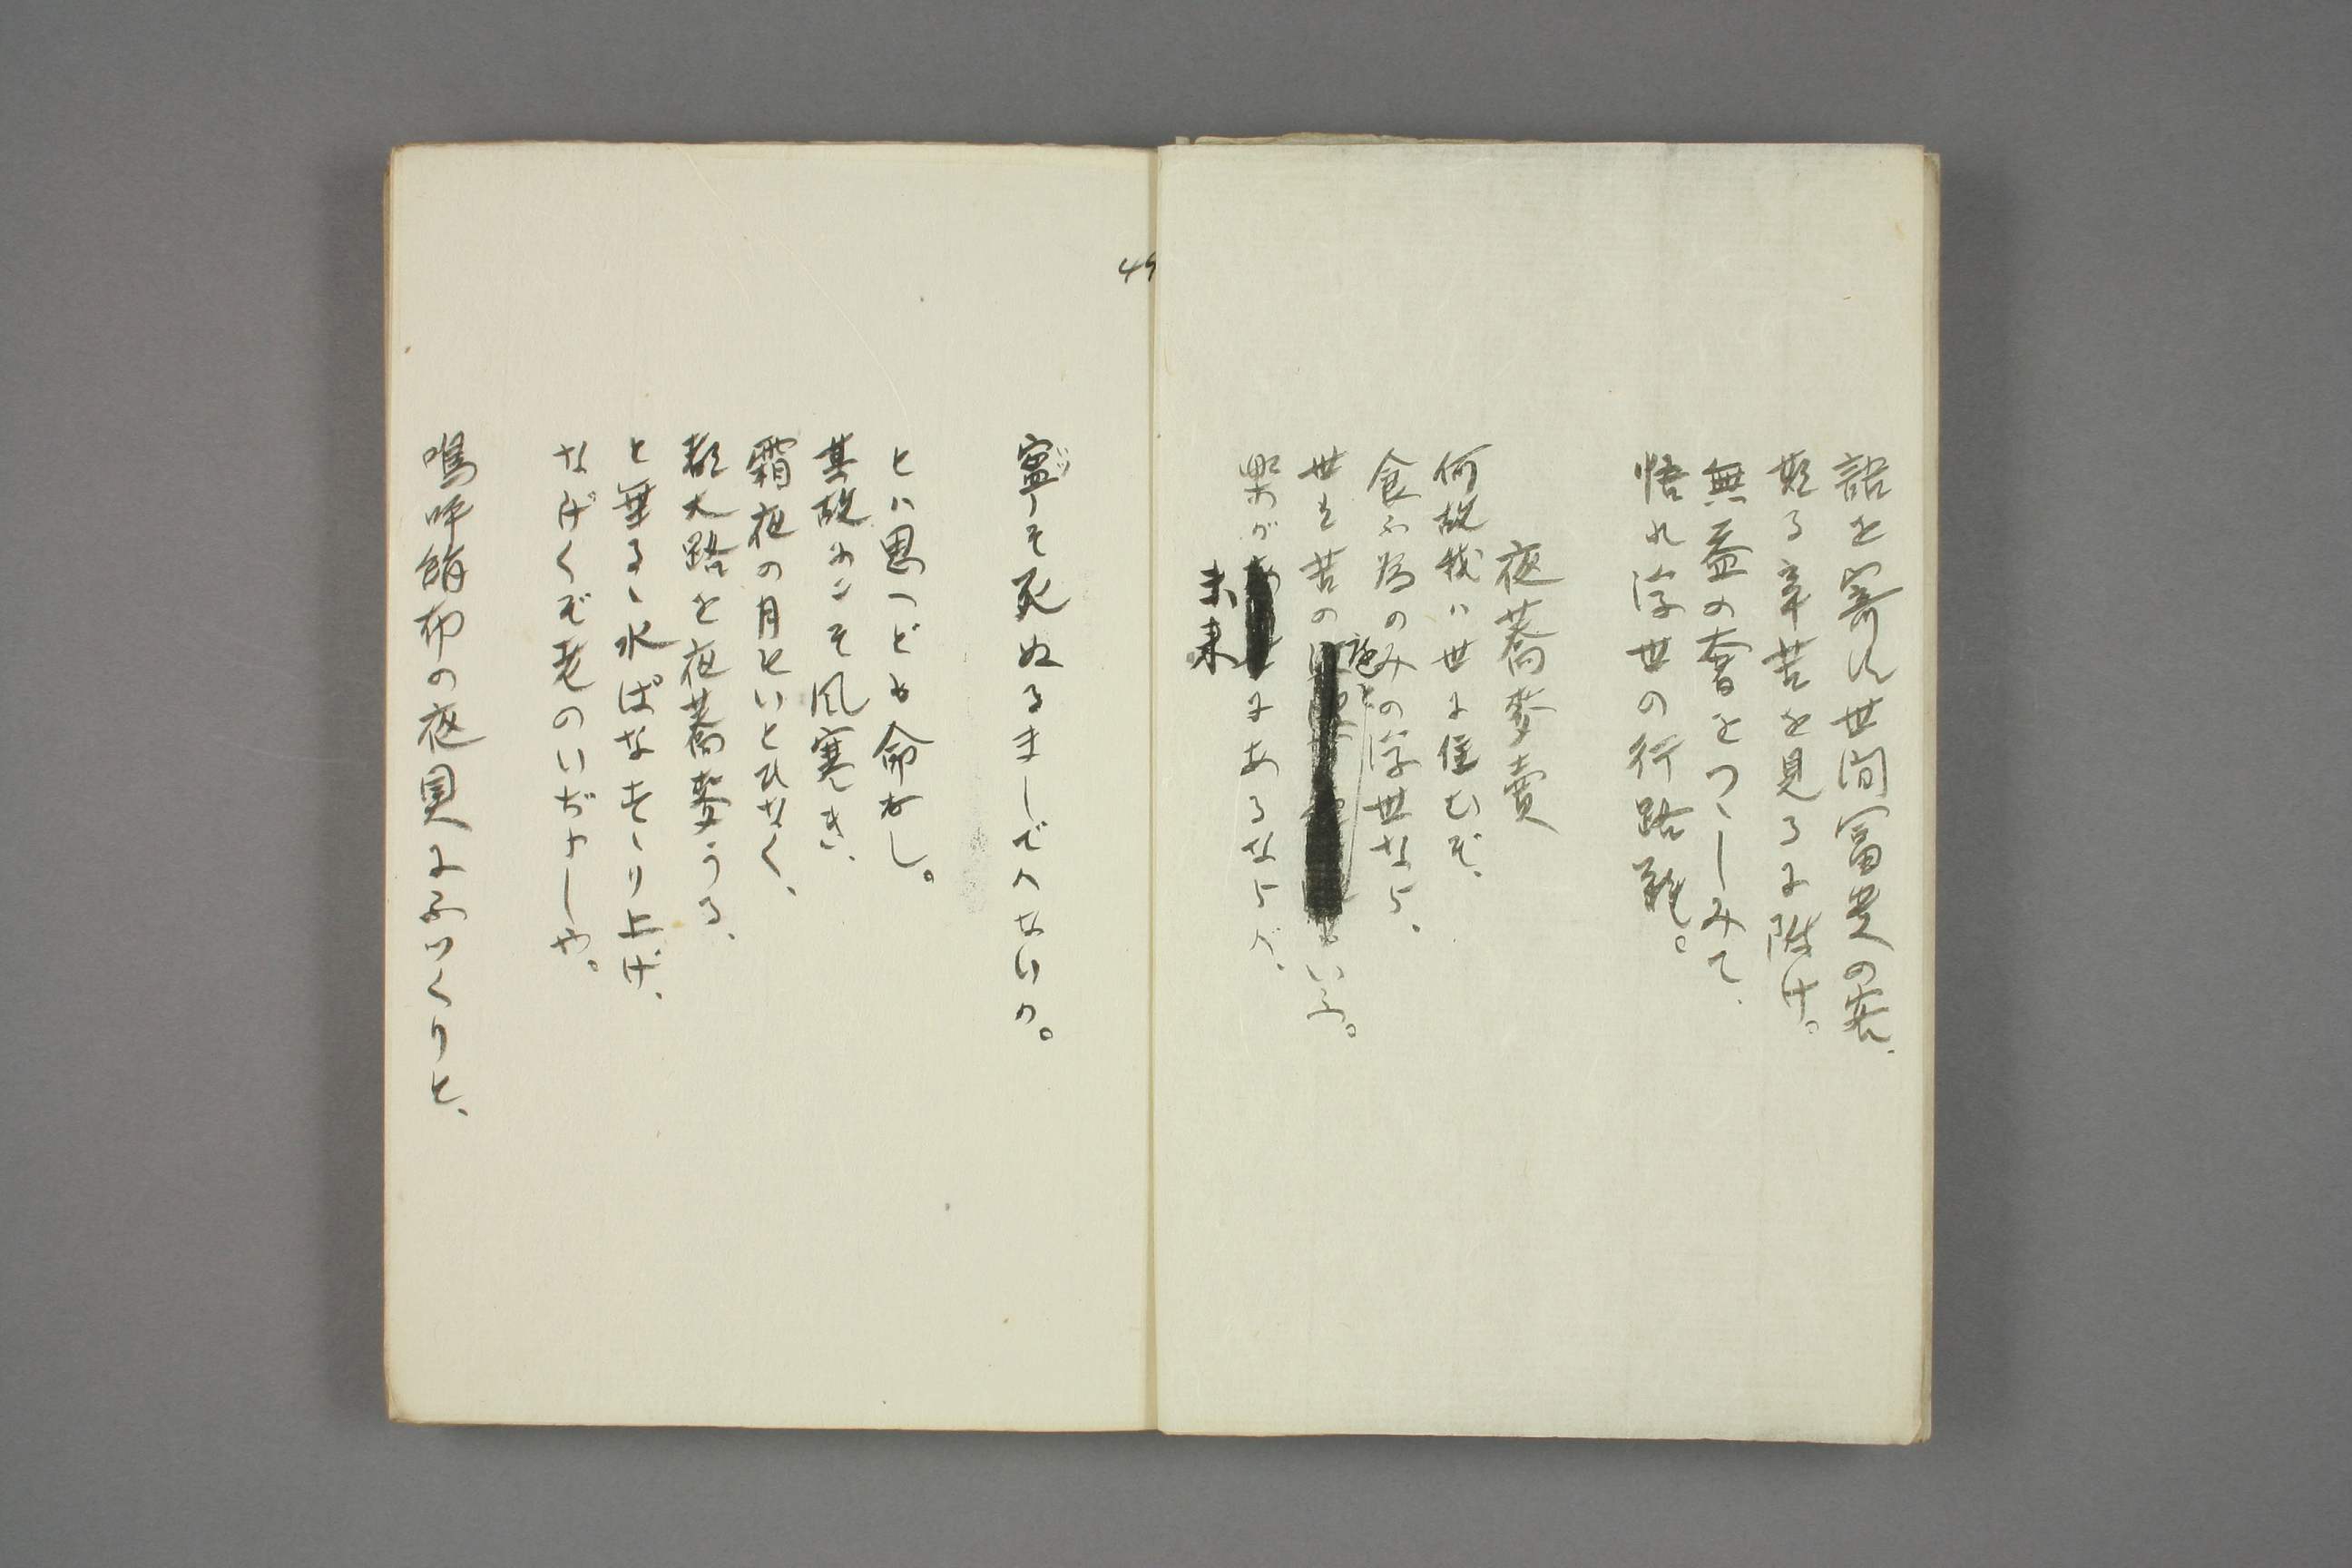 語を寄す世間富貴の客、
斯る辛苦を見るに附け。
無益の奢をつゝしみて、
悟れ浮世の行路難。
夜蕎麦売
何故我ハ世に住むぞ、
食ふ為のみの浮世なら、
世を苦の
海といふ。
楽が
未来
にあるならバ、
49
寧そ死ぬるましでハないか。
とハ思へども命なし。
其故にこそ風寒き、
霜夜の月をいとひなく、
都大路を夜蕎麦うる、
と垂るゝ水ばなすゝり上げ、
なげくぞ老のいぢらしや。
嗚呼絹布の夜具にぬつくりと、